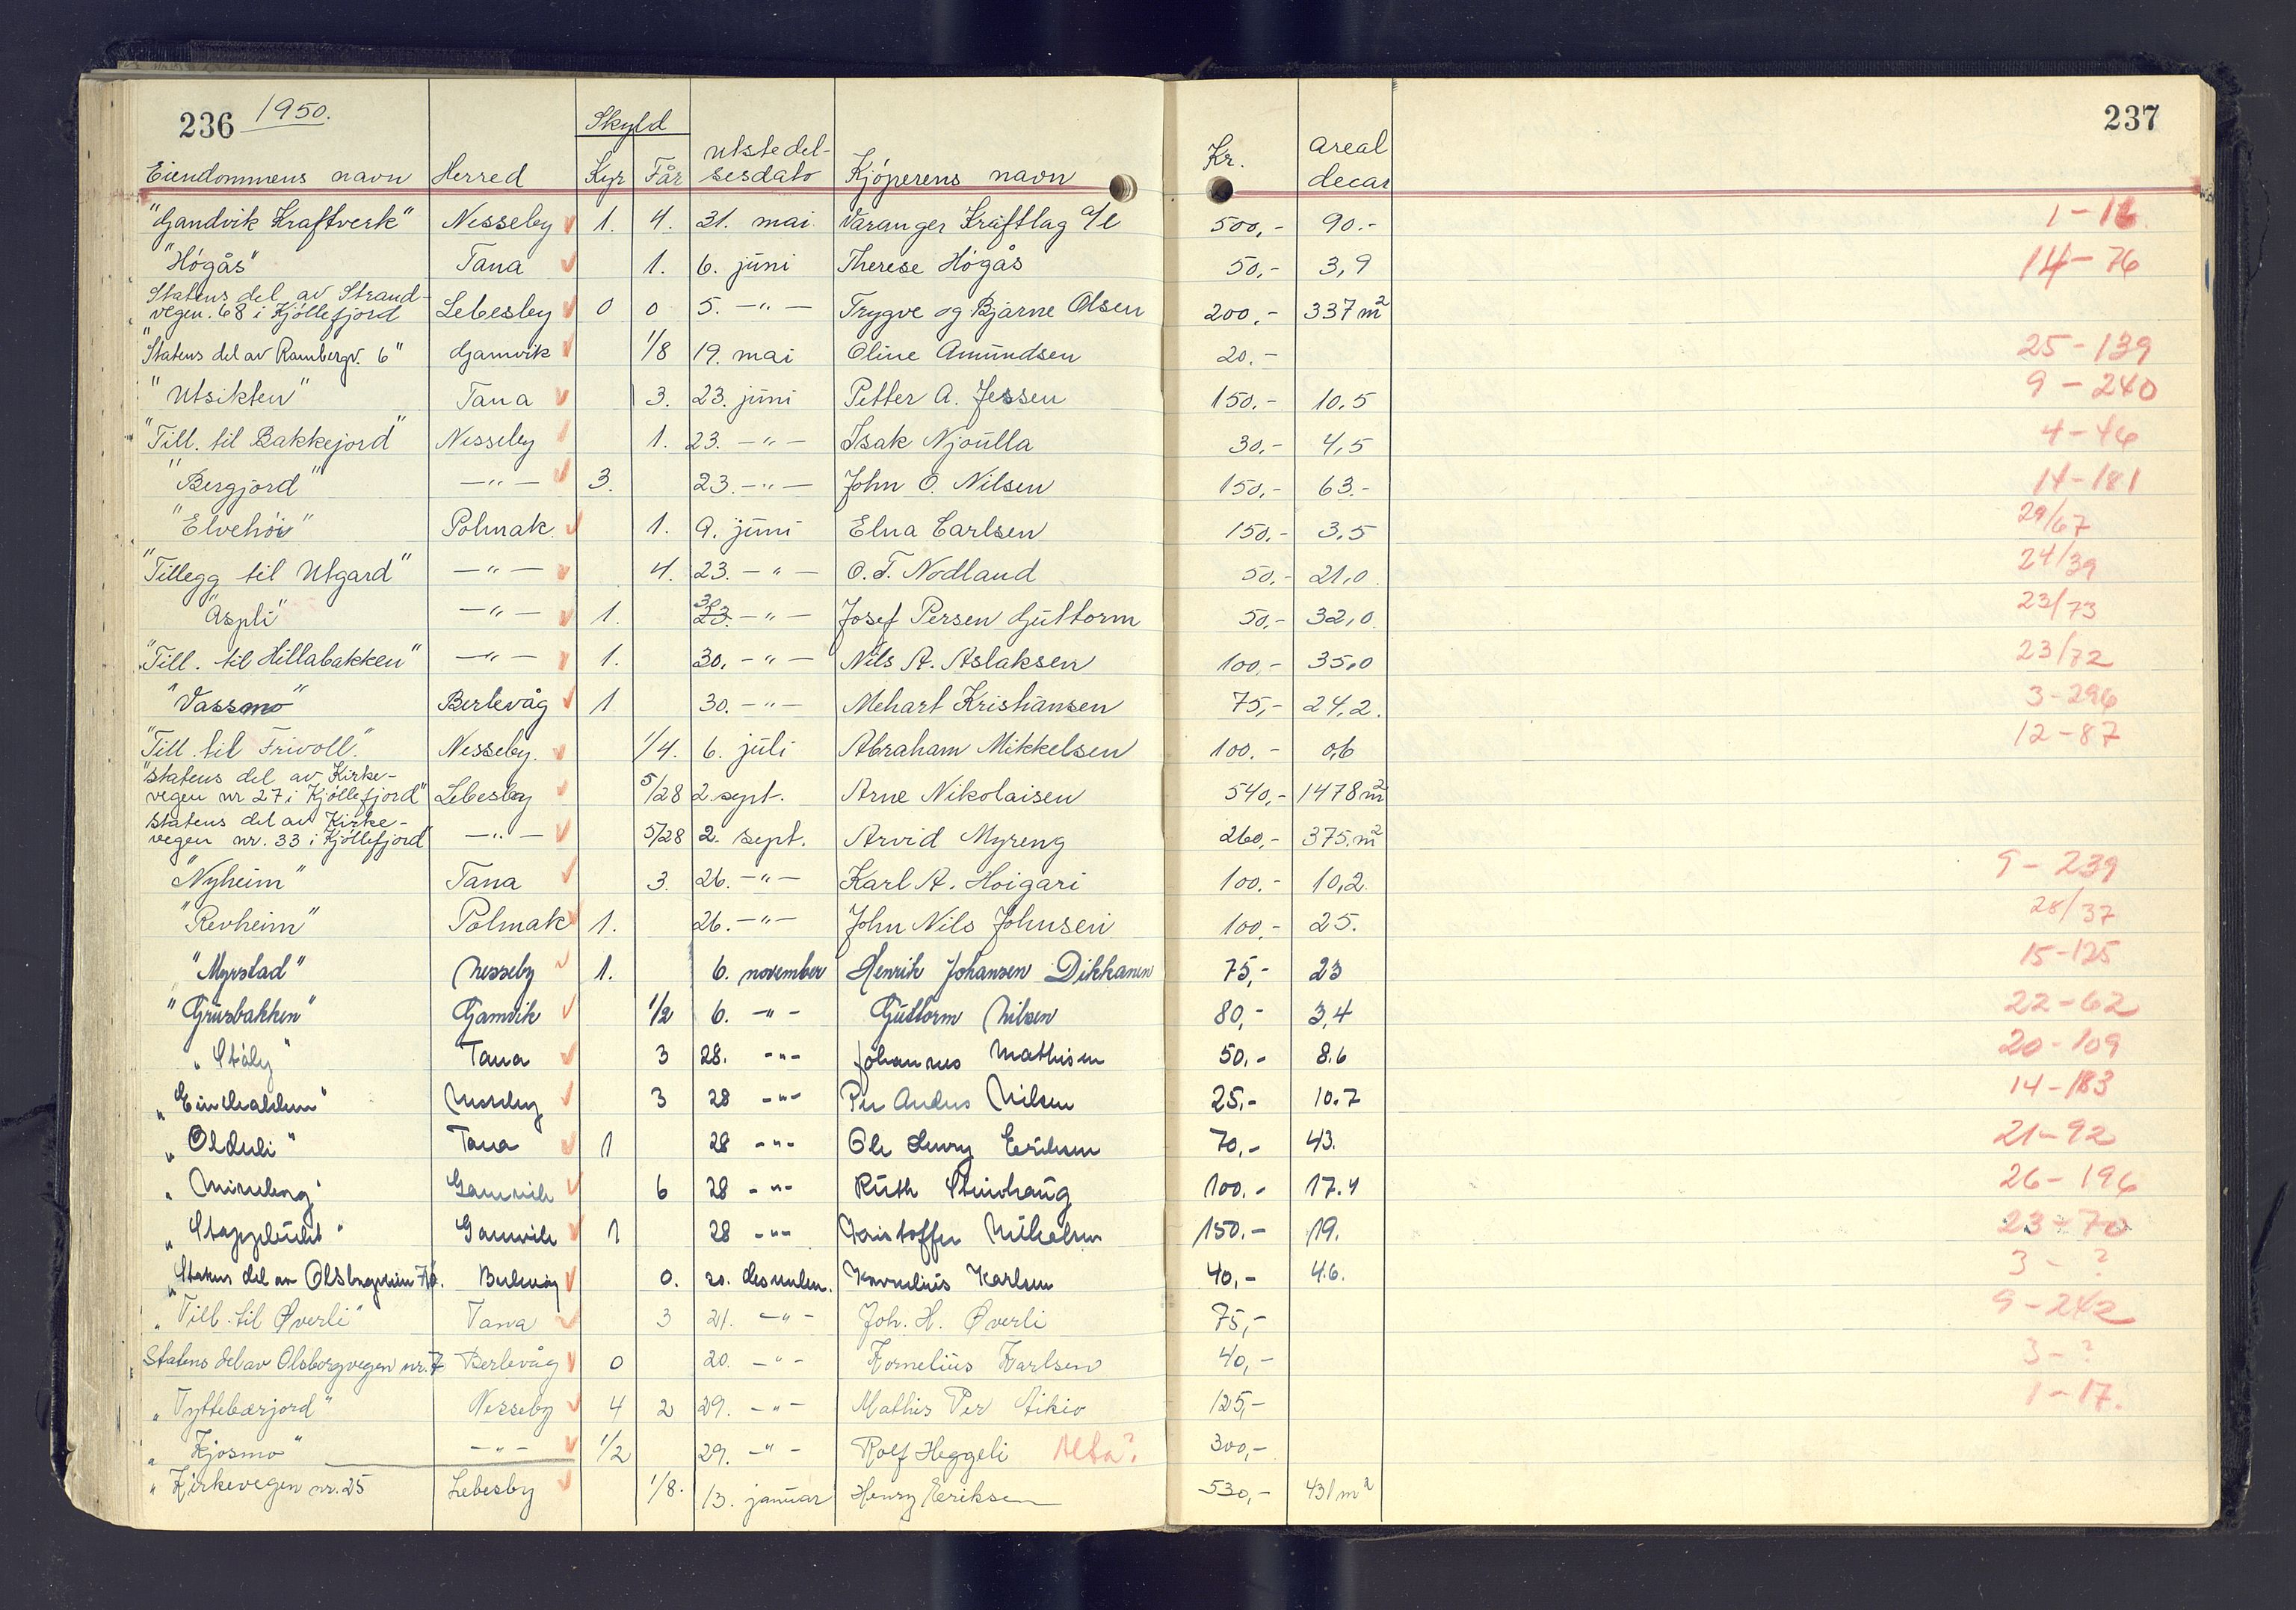 236 1950. 237
Skyld
Eiendommens navn Herred Kyr Får utstedel- Kjøperens navn Kr. areal
sesdato decar
"Gandvik Kraftverk" Nesseby 1. 4. 31. mai Varanger Kraftlag a/l 500,- 90.- 1-16.
"Høgås" Tana 1. 6. juni Therese Høgås 50,- 3,9 14-76
Statens del av Strand-
vegen. 68 i Kjøllefjord Lebesby 0 0 5. -"- Trygve og Bjarne Olsen 200,- 337 m²
"Statens del av Rambergv. 6" Gamvik 1/8 19. mai Oline Amundsen 20.- 25-139
"Utsikten" Tana 3. 23. juni Petter A. Jessen 150.- 10.5 9-240
"Till. til Bakkejord" Nesseby 1. 23. -"- Isak Njoulla 30,- 4,5 4-46
"Bergjord" -"- 3. 23. -"- John O. Nilsen 150,- 63.- 14-181
"Elvehøi" Polmak. 1. 9. juni Elna Carlsen 150.- 3.5 29/67
"Tillegg til Utgard" -"- 4. 23. -"- O. T. Nodland 50,- 21,0. 24/39
"Aspli" -"- 1. 30 23. -"- Josef Persen Guttorm 50,- 32,0. 23/73
"Till. til Hillabakken" -"- 1. 30. -"- Nils A. Aslaksen 100,- 35,0 23/72
"Vassmo" Berlevåg 1 30. -"- Mehart Kristiansen 75,- 24,2. 3-296
"Till. til Frivoll". Nesseby. 1/4. 6. juli Abraham Mikkelsen 100.- 0,6 12-87
"Statens del av Kirke-
vegen nr 27 i Kjøllefjord" Lebesby 5/28 2. sept. Arne Nikolaisen 540,- 1478 m²
Statens del av Kirke-
vegen nr. 33 i Kjøllefjord" -"- 5/28 2. sept. Arvid Myreng 260,- 375. m²
"Nyheim" Tana 3. 26. -"- Karl A. Hoigari 100.- 10,2. 9-239
"Revheim" Polmak 1. 26. -"- John Nils Johnsen 100,- 25. 28/37
"Myrstad" Nesseby 1. 6. november Henrik Johansen Dikkanen 75,- 23 15-125
"Grusbakken" Gamvik 1/2 6. -"- Guttorm Nilsen 80,- 3,4 22-62
"Ståly" Tana 3 28. -"- Johannes Mathisen 50,- 8.6 20-109
Nesseby 3 28 -"- Per Anders Nilsen 25,- 10.7 14-183
"Olduli" Tana 1 28 -"- Ole Henry Eriksen 70,- 43. 21-92
Gamvik 6 28 -"- Ruth Steinhaug 100.- 17.4 26-196
"Stappbukt" Gamvik 1 28 -"- Kristoffer 150.- 19. 23-70
"Statens del av Berlevåg 0. 20. desember. Kornelius Karlsen 40,- 4.6. 3-?
"Till. til Øverli" Tana 3 21. -"- Joh. H. Øverli 75,- 9-242
Statens del av Olsbergvegen nr. 7 Berlevåg 0 20. -"- Kornelius Karlsen 40,- 3-?
"Tyttebærjord" Nesseby 4 2 29. -"- Mathis Per Aikio 125,- 1-17.
"Kjosmo" -"- 1/2 29. -"- Rolf Heggeli Alta? 300,-
"Kirkevegen nr. 25 Lebesby 1/8. 13. januar Henry Eriksen 530,- 431 m²